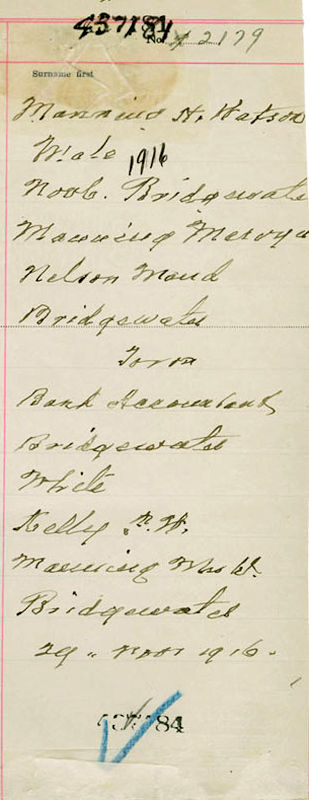 437184
No. 2179
Surname first
Manning H. Watson
Male 1916
Nov 6. Bridgewater
Manning Mervyn
Nelson Maud
Bridgewater
Town
Bank Accountant
Bridgewater
White
Kelly
Manning Mrs W.
Bridgewater
29. Nov 1916.
437184